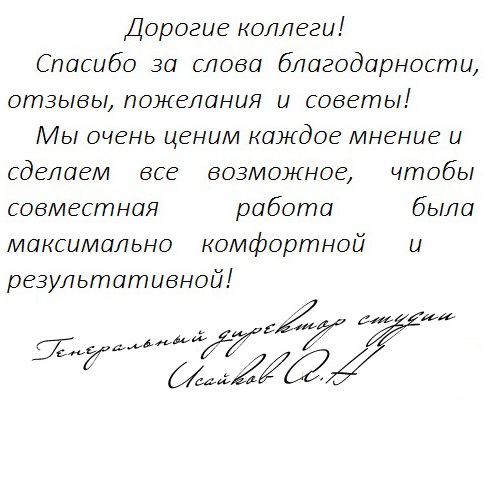 Дорогие коллеги!
Спасибо за слова благодарности,
отзывы, пожелания и советы!
Мы очень ценим каждое мнение и
сделаем все возможное, чтобы
совместная работа была
максимально комфортной и
результативной!
Генеральный директор студии
Исайков А.Н